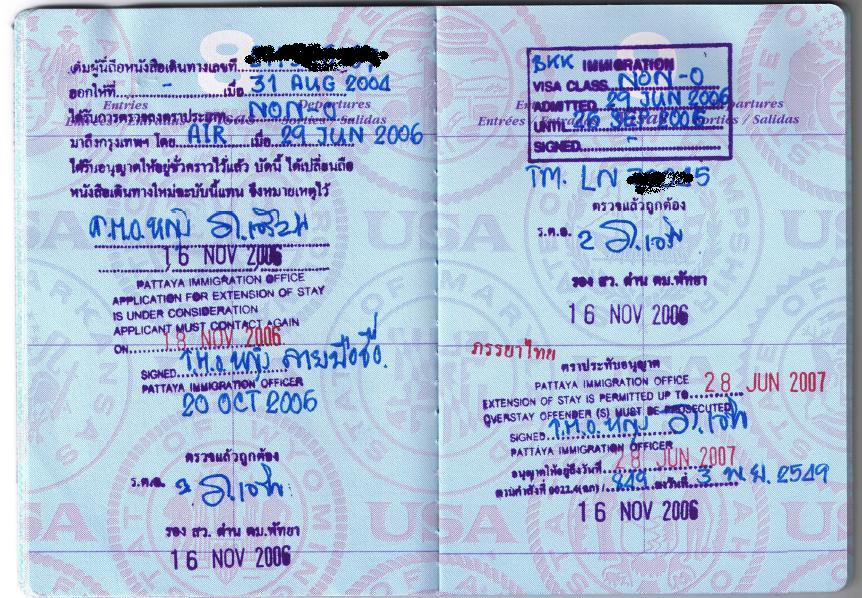 เดิมผู้นี้ถือหนังสือเดินทางเลขที่
ออกให้ที่ - เมื่อ 31 AUG 2004
Entries Departures
ได้รับการตรวจลงตราประเภท NON-O
Entrées Sorties / Salidas
มาถึงกรุงเทพฯ โดย AIR เมื่อ 29 JUN 2006
ได้รับอนุญาตให้อยู่ชั่วคราวไว้แล้ว บัดนี้ ได้เปลี่ยนถือ
หนังสือเดินทางใหม่ฉะบับนี้แทน จึงหมายเหตุไว้
16 NOV 2006
PATTAYA IMMIGRATION OFFICE
APPLICATION FOR EXTENSION OF STAY
IS UNDER CONSIDERATION
APPLICANT MUST CONTACT AGAIN
ON 18 NOV 2006
SIGNED
PATTAYA IMMIGRATION OFFICER
20 OCT 2006
ตรวจแล้วถูกต้อง
ร.ต.อ.
รอง สว. ด่าน ตม.พัทยา
16 NOV 2006
BKK IMMIGRATION
VISA CLASS NON-O
ADMITTED 29 JUN 2006
Departures
Entrées Sorties / Salidas
UNTIL 26 SEP 2006
SIGNED -
TM. LN 5
ตรวจแล้วถูกต้อง
ร.ต.อ.
รอง สว. ด่าน ตม.พัทยา
16 NOV 2006
ภรรยาไทย
ตราประทับอนุญาต
PATTAYA IMMIGRATION OFFICE
EXTENSION OF STAY IS PERMITTED UP TO 28 JUN 2007
OVERSTAY OFFENDER (S) MUST BE PROSECUTED
SIGNED
PATTAYA IMMIGRATION OFFICER
อนุญาตให้อยู่ถึงวันที่ 28 JUN 2007
ตามคำสั่งที่ 0022.4(ฉก)/ 849 ลงวันที่ 3 พ.ย. 2549
16 NOV 2006